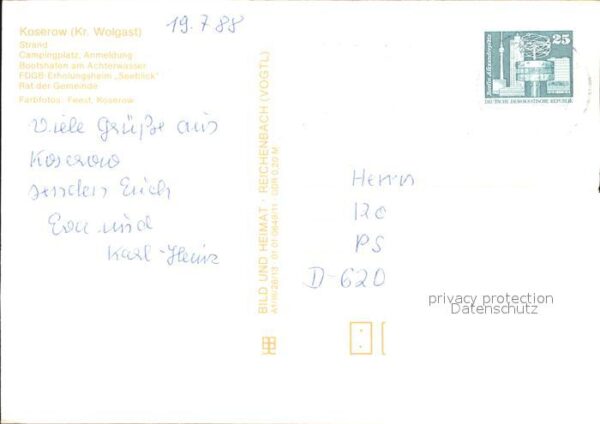 19.7.88
Koserow (Kr. Wolgast)
Strand
Campingplatz, Anmeldung
Bootshafen am Achterwasser
FDGB-Erholungsheim „Seeblick"
Rat der Gemeinde
Farbfotos: Feest, Koserow
Viele Grüße aus
Koserow
senden Euch
Eva und
Karl-Heinz
BILD UND HEIMAT · REICHENBACH (VOGTL)
A1/III/26/13 01 01 0649/11 DDR 0,20 M
25
Berlin, Alexanderplatz
DEUTSCHE DEMOKRATISCHE REPUBLIK
Herrn
PS
D-620
privacy protection
Datenschutz